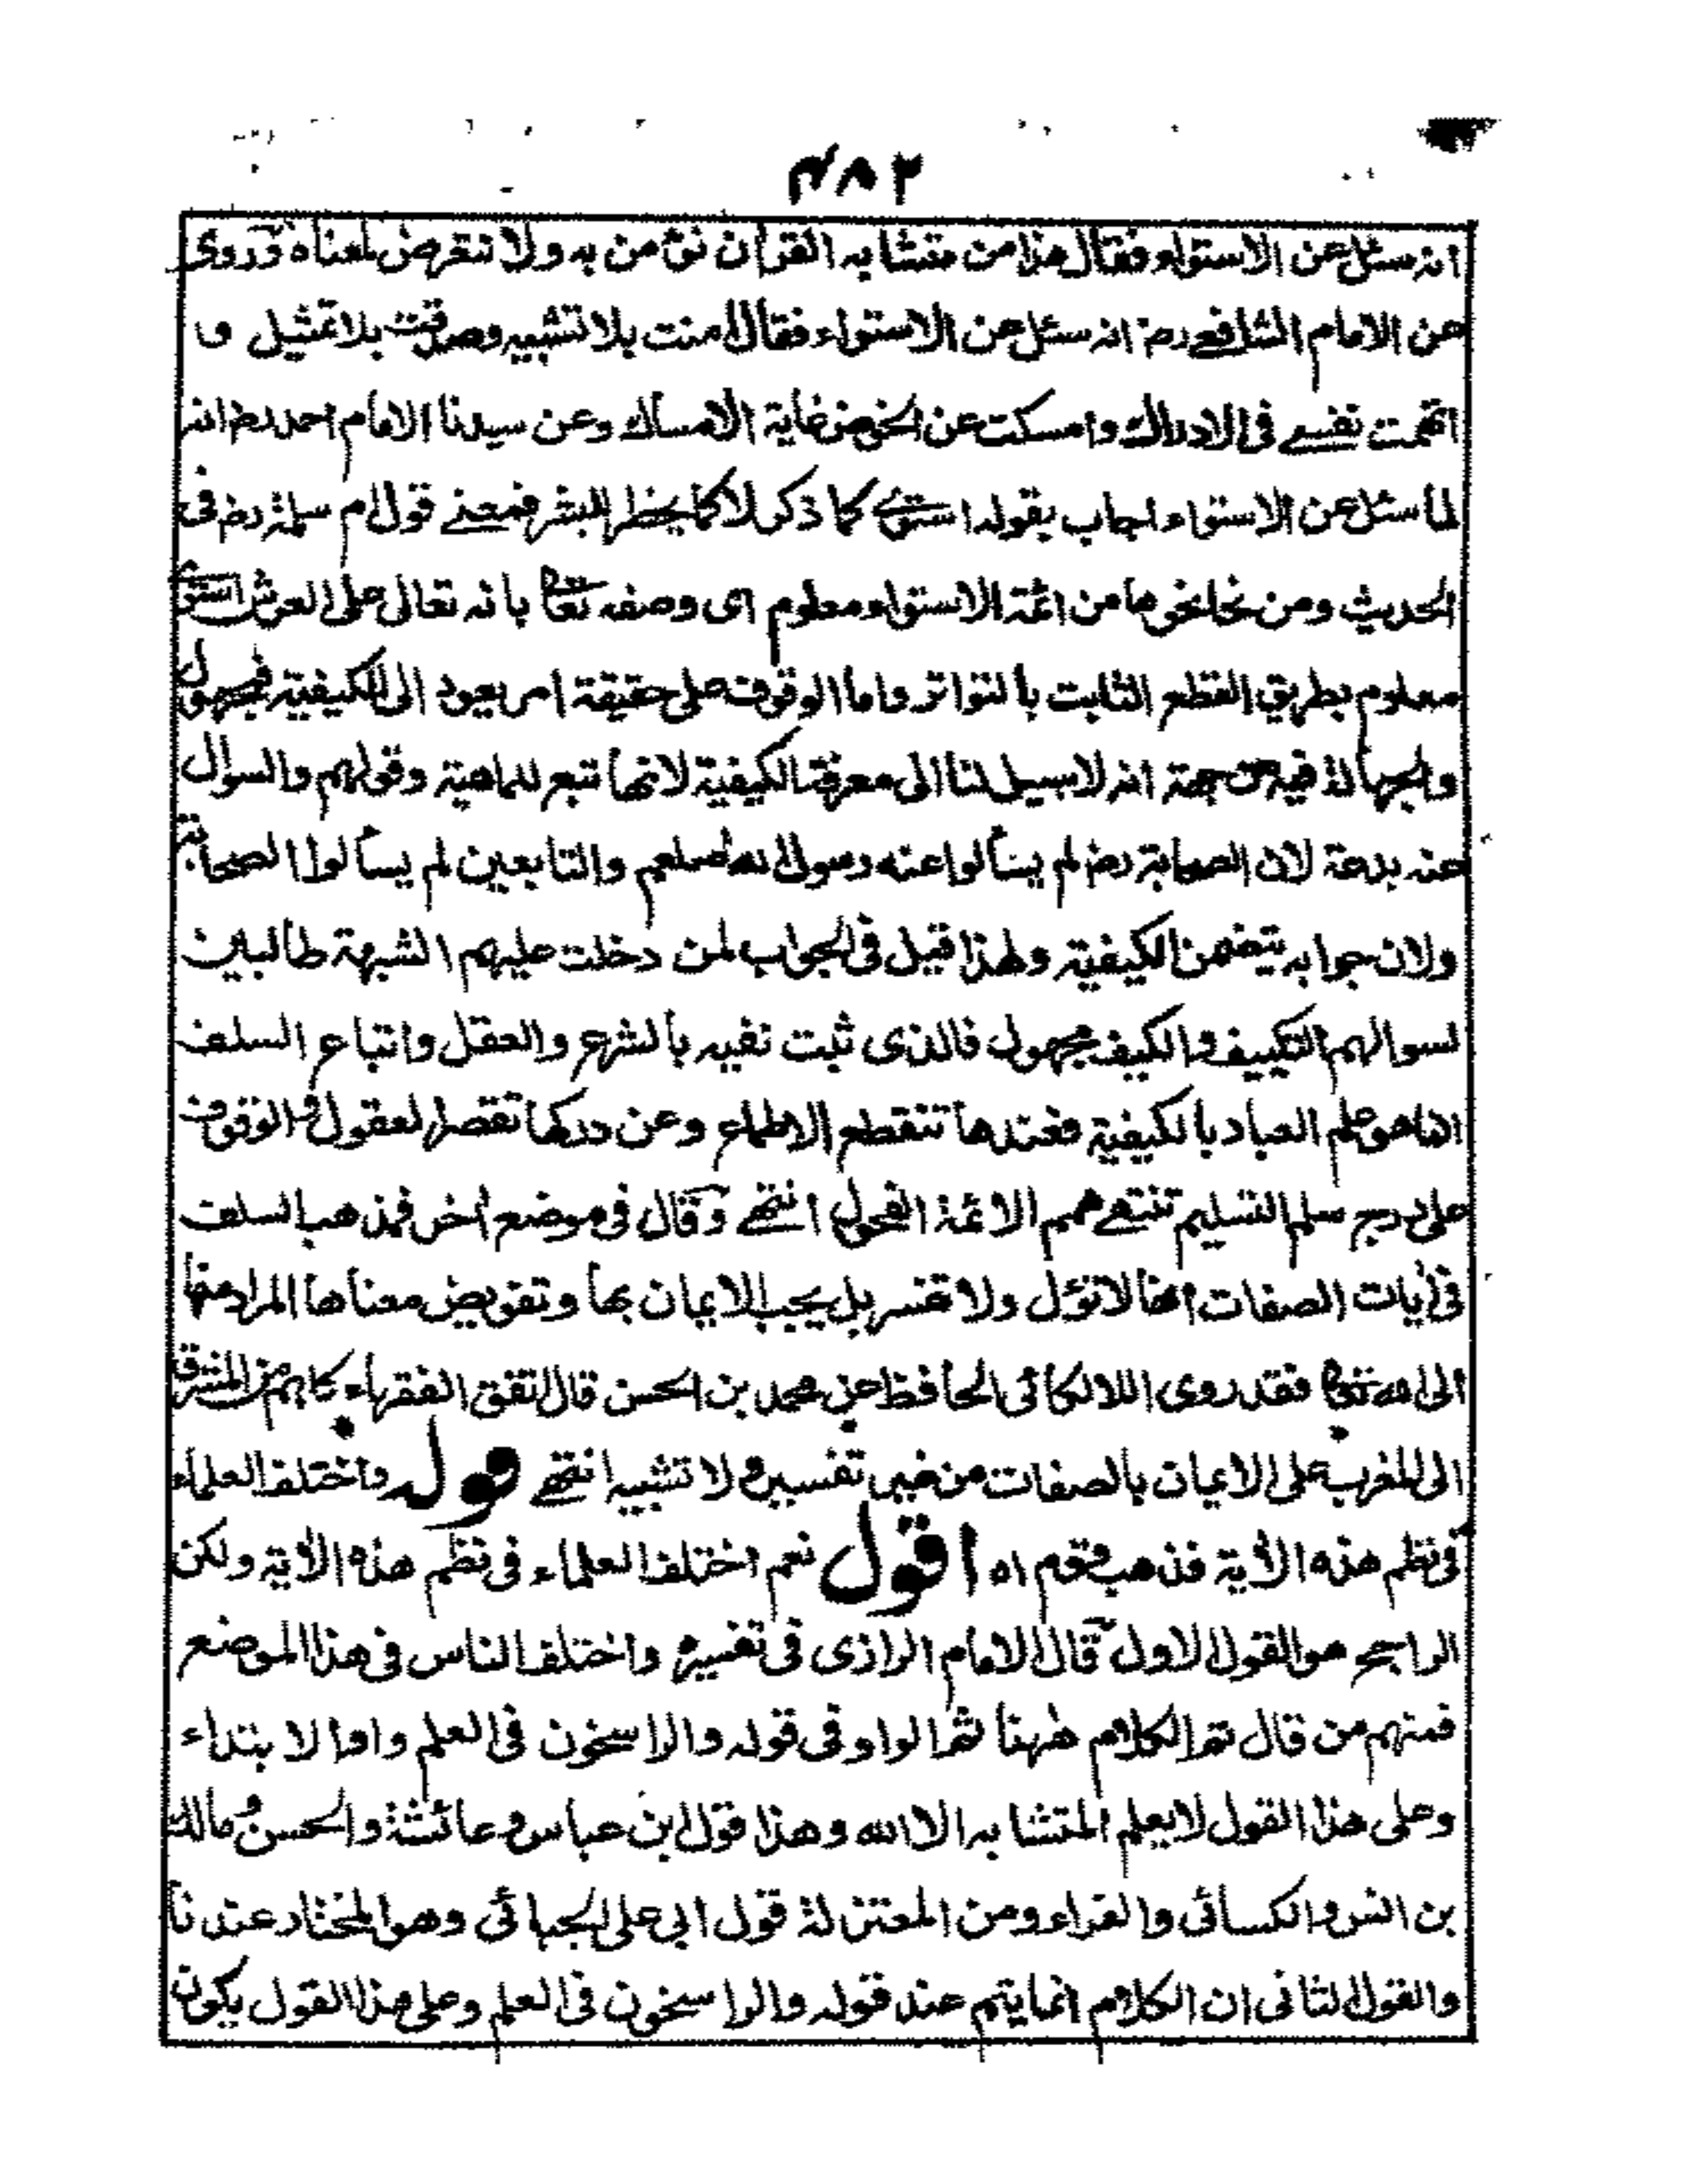 ٤٨٢
انه سئل عن الاستواء فقال هذا من متشابه القرآن نؤمن به ولا نتعرض لمعناه وروى
عن الامام الشافعي رح انه سئل عن الاستواء فقال امنت بلا تشبيه وصدقت بلا تمثيل و
اتهمت نفسي في الادراك وامسكت عن الخوض غاية الامساك وعن سيدنا الامام احمد رض انه
لما سئل عن الاستواء اجاب بقوله استوى كما ذكر لا كما يخطر للبشر فمعنى قول ام سلمة رض في
الحديث ومن نحا نحوها من ائمة الاستواء معلوم اى وصفه تعالى بانه تعالى على العرش استوى
معلوم بطريق القطع الثابت بالتواتر واما الوقوف على حقيقة امر يعود الى الكيفية فمجهول
والجهالة فيه من جهة انه لا سبيل لنا الى معرفة الكيفية لانها تبع للماهية وقولهم والسوال
عنه بدعة لان الصحابة رض لم يسألوا عنه رسول الله صلعم والتابعين لم يسألوا الصحابة
ولان جوابه يتضمن الكيفية ولهذا قيل في الجواب لمن دخلت عليهم الشبهة طالبين
لسوالهم التكييف والكيف مجهول فالذى ثبت نفيه بالشرع والعقل واتباع السلف
انما هو علم العباد بالكيفية فعندها تنقطع الاطماع وعن دركها تقصر العقول والوقوف
على درج سلم التسليم تنتهي همم الائمة الفحول انتهى وقال في موضع آخر فمذهب السلف
في آيات الصفات انها لا تؤل ولا تفسر بل يجب الايمان بها وتفويض معناها المراد منها
الى الله تعالى فقد روى اللالكائى الحافظ عن محمد بن الحسن قال اتفق الفقهاء كلهم من المشرق
الى المغرب على الايمان بالصفات من غير تفسير ولا تشبيه انتهى قوله واختلف العلماء
في نظم هذه الآية فذهب قوم اه اقول نعم اختلف العلماء في نظم هذه الآية ولكن
الراجح هو القول الاول قال الامام الرازى في تفسيره واختلف الناس في هذا الموضع
فمنهم من قال تم الكلام ههنا ثم الواو في قوله والراسخون في العلم واو الابتداء
وعلى هذا القول لا يعلم المتشابه الا الله وهذا قول ابن عباس وعائشة والحسن ومالك
بن انس والكسائى والفراء ومن المعتزلة قول ابى على الجبائى وهو المختار عندنا
والقول الثانى ان الكلام انما يتم عند قوله والراسخون في العلم وعلى هذا القول يكون